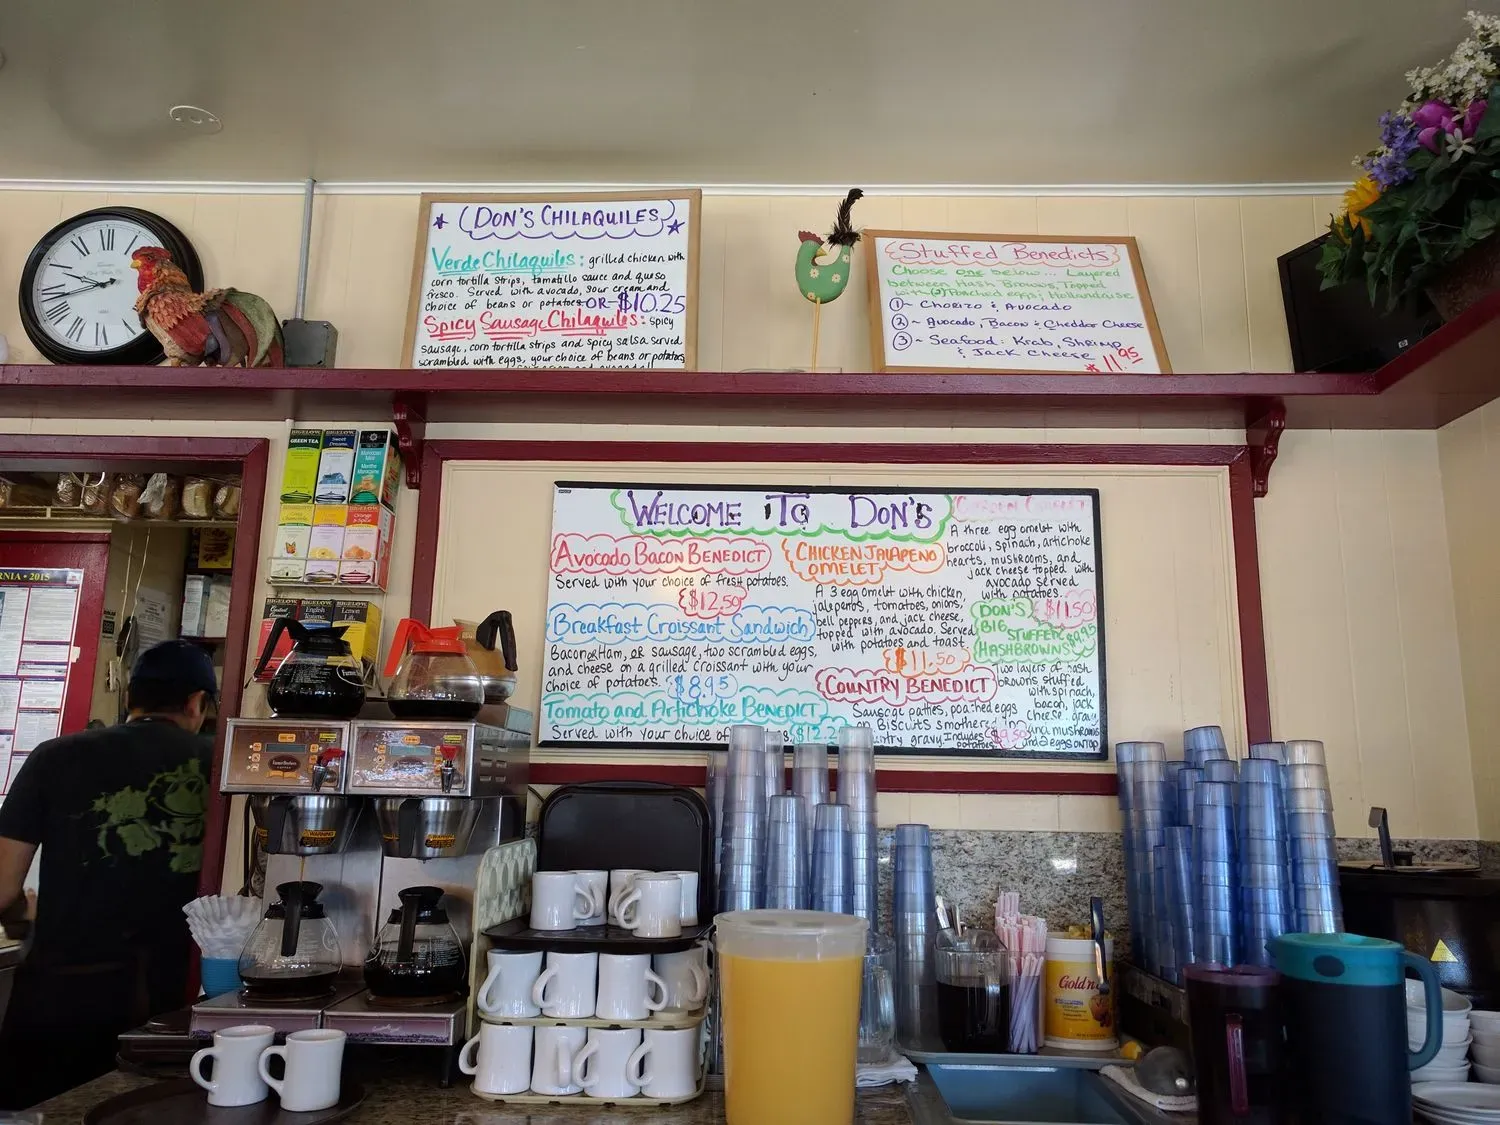 DON'S CHILAQUILES
Verde Chilaquiles: grilled chicken with
corn tortilla strips, tamatillo sauce and queso
fresco. Served with avocado, sour cream and
choice of beans or potatoes -OR- $10.25
Spicy Sausage Chilaquiles: spicy
sausage, corn tortilla strips and spicy salsa served
scrambled with eggs, your choice of beans or potatoes
Stuffed Benedicts
Choose one below... Layered
between Hash Browns, Topped
with (2) Poached eggs & Hollandaise
1 ~ Chorizo & Avocado
2 ~ Avocado, Bacon & Cheddar Cheese
3 ~ Seafood: Krab, Shrimp
& Jack Cheese
$11.95
WELCOME TO DON'S
AVOCADO BACON BENEDICT
Served with your choice of fresh potatoes.
$12.50
Breakfast Croissant Sandwich
Bacon or Ham, OR sausage, two scrambled eggs,
and cheese on a grilled croissant with your
choice of potatoes. $8.95
Tomato and Artichoke BENEDICT
Served with your choice of
$12.2
CHICKEN JALAPENO
OMELET
A 3 egg omelet with chicken,
jalepenos, tomatoes, onions,
bell peppers, and jack cheese,
topped with avocado. Served
with potatoes and toast.
$11.50
COUNTRY BENEDICT
Sausage patties, poached eggs
on Biscuits smothered in
country gravy. Includes
potatoes. $9.50
A three egg omelet with
broccoli, spinach, artichoke
hearts, mushrooms, and
jack cheese topped with
avocado served
with potatoes.
$11.50
DON'S
BIG
STUFFED
HASHBROWNS $9.95
Two layers of hash
browns stuffed
with spinach,
bacon, jack
cheese, gravy
and mushrooms
and 2 eggs on top
BIGELOW
GREEN TEA
BIGELOW
Sweet
Dreams
Moroccan
Mint
Orange
& Spice
BIGELOW
BIGELOW
English
Teatime
BIGELOW
Lemon
Lift
RNIA • 2015
Farmer Brothers
WARNING
WARNING
Gold'n